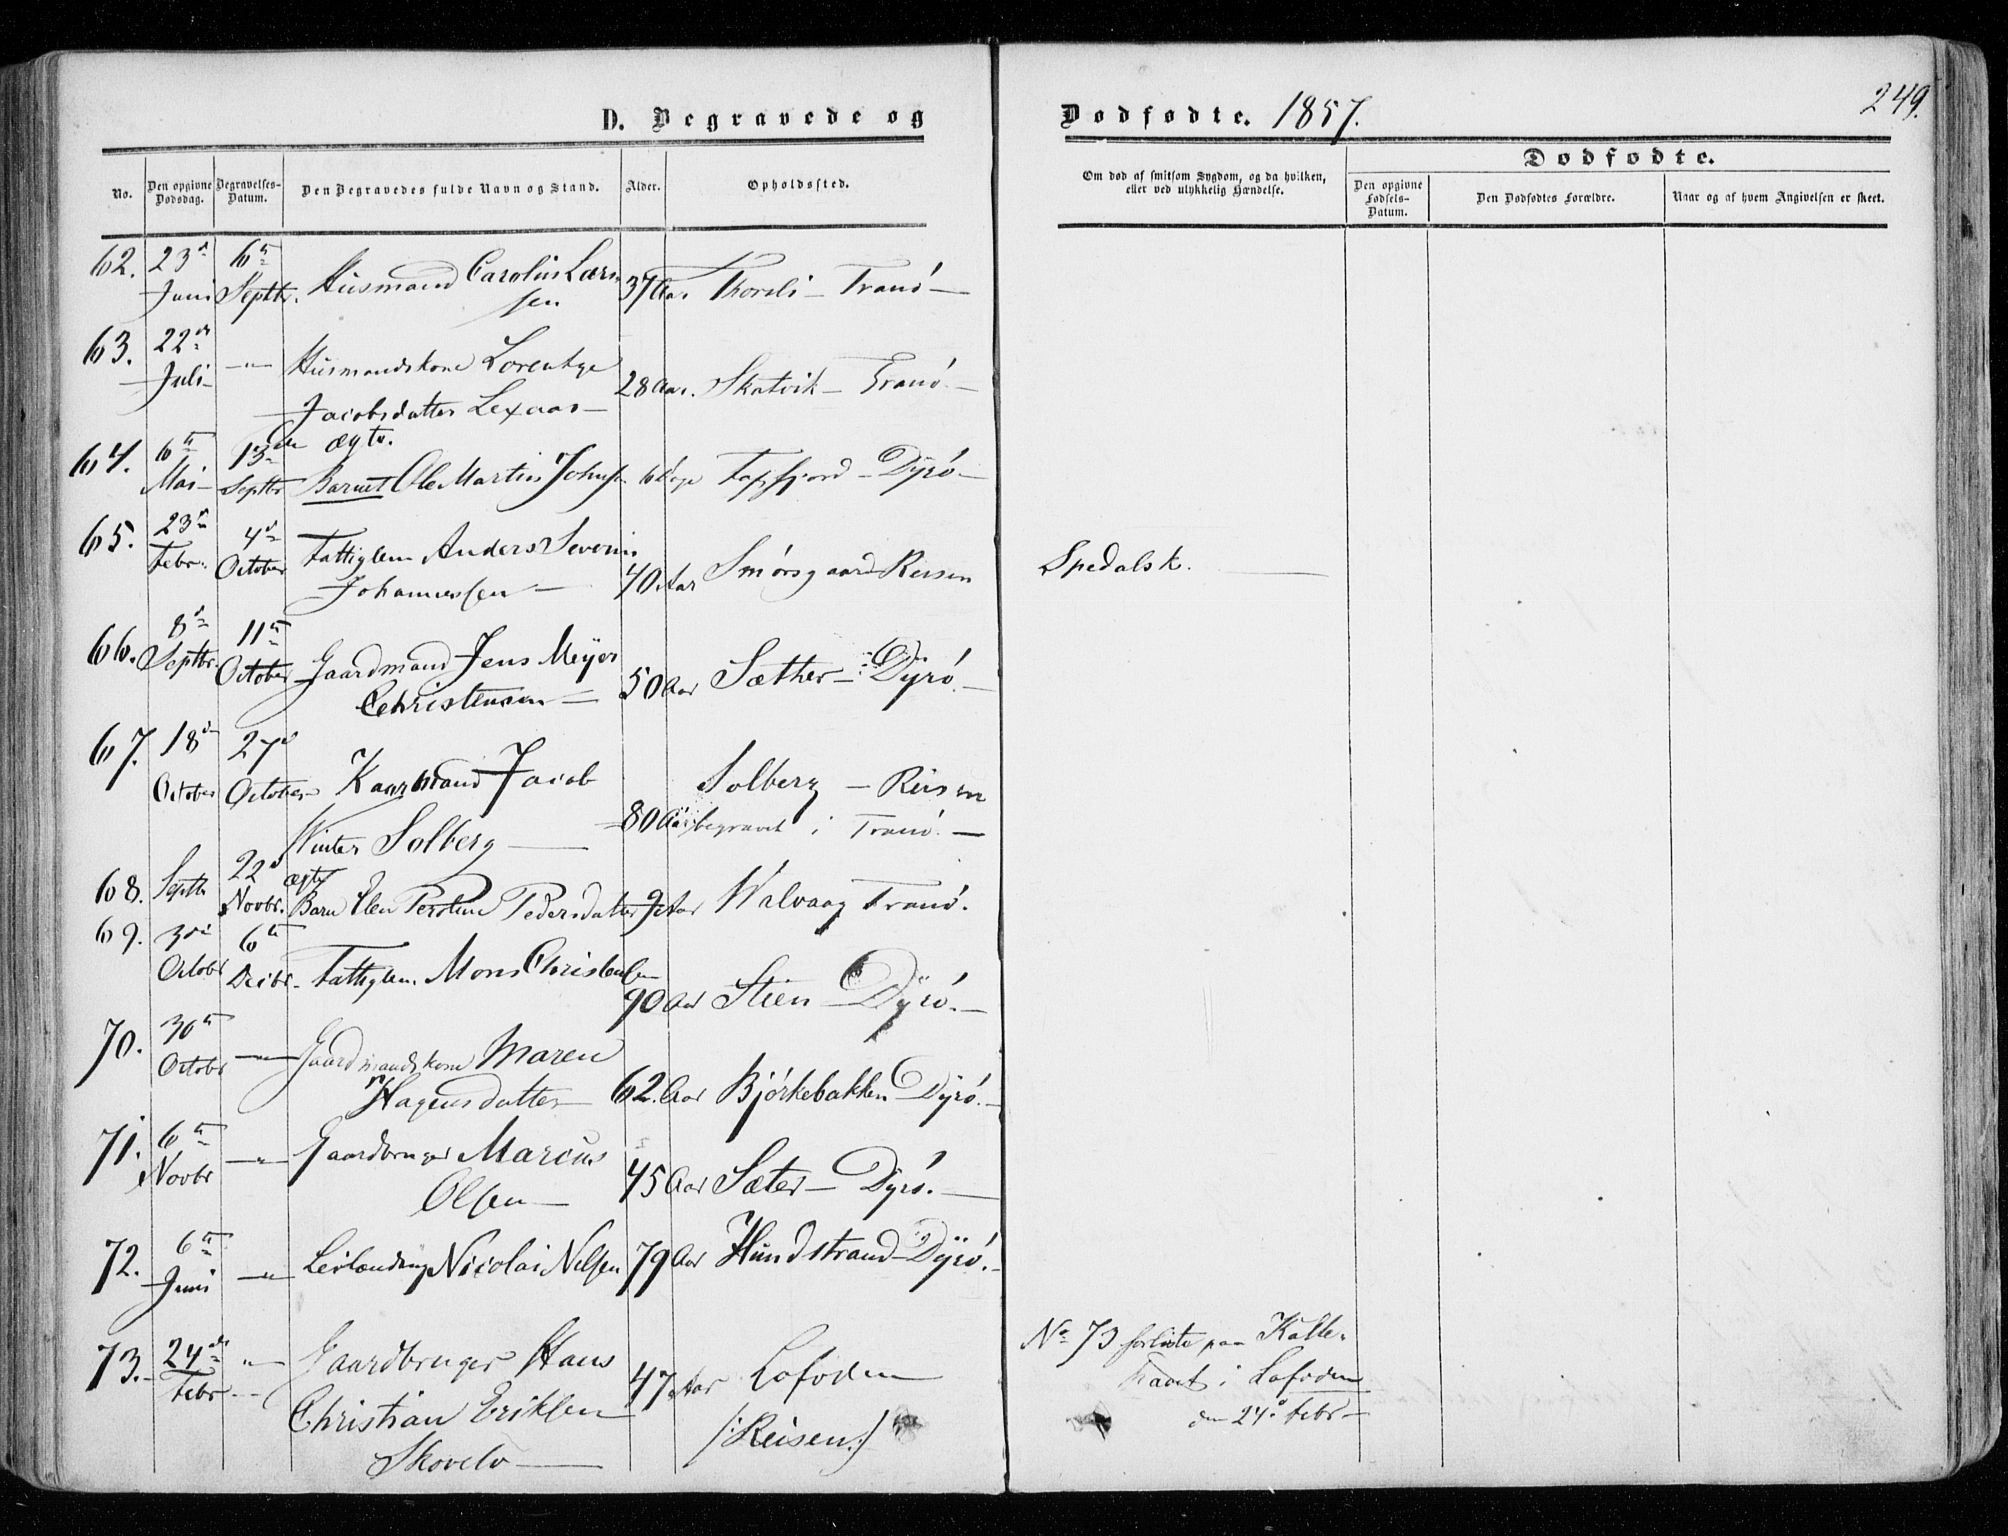 D. Begravede og Dødfødte. 1857. 249.
No. Den opgivne Dødsdag. Begravelses-Datum. Den Begravedes fulde Navn og Stand. Alder. Opholdssted. Om død af smitsom Sygdom, og da hvilken, eller ved ulykkelig Hændelse.
Dødfødte.
Den opgivne Fødsels-Datum. Den Dødfødtes Forældre. Naar og af hvem Angivelsen er skeet.
62. 23d Juni 6te Septbr. Husmand Carolius Larssen 37 Aar Thorsli – Tranø –
63. 22de Juli – " – Husmandskone Lorentze
Jacobsdatter Lexaas – 28 Aar. Skatvik – Tranø. –
64. 6te Mai – 13de Septbr ægte.
Barnet Ole Martin Johns. 6 Dage Tapfjord – Dyrø –
65. 23de Febr. 4de October Fattiglem Anders Severin
Johannessen – 40 Aar Smørsgaard Reisen Spedalsk.
66. 8de Septbr. 11te October Gaardmand Jens Meyer
Christensen – 50 Aar Sæther – Dyrø. –
67. 18de October 27d October Kaarmand Jacob
Winter Solberg – 80 Aar Solberg – Reisen
begravet i Tranø. –
68. Septbr 22d Novbr. ægte
Barn Elen Pedersdatter 9 Aar Walvaag Tranø.
69. 3die Octobr 6te Decbr. Fattiglem. Mons Christensen
90 Aar Stien – Dyrø. –
70. 30te Octobr – " – Gaardmandskone Maren
Hagensdatter 62. Aar Bjørkebakken Dyrø. –
71. 6te Novbr – " – Gaardbruger Marcus
Olsen – 45 Aar Sæter – Dyrø. –
72. 6te Juni – " – Leilænding Nicolai Nilsen 79 Aar Hundstrand – Dyrø. –
73. 24de Febr – " – Gaardbruger Hans
Christian Eriksen
Skovelv 47 Aar Lofoden
/:Reisen:/
No 73 forliste paa
Havet i Lofoden
den 24d Febr –